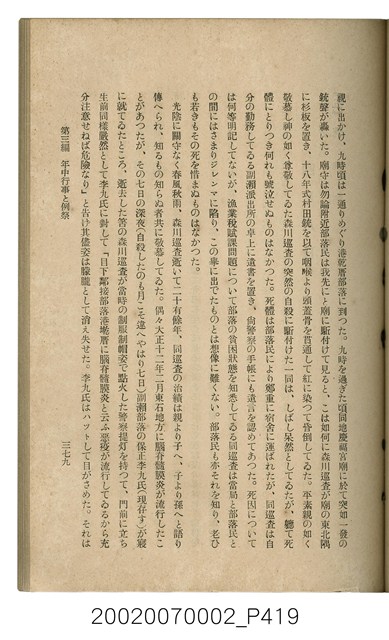 視に出かけ、九時頃は一通りめぐり港墘厝部落に到つた。九時を過ぎた頃同地慶福宮廟に於て突如一發の
銃聲が轟いた。廟守は勿論附近部落民は我先にと廟に駈付けて見ると、こは如何に森川巡査が廟の東北隅
に杉板を置き、十八年式村田銃を以て咽喉より頭蓋骨を貫通して紅に染つて昏倒してゐた。平素親の如く
敬慕し神の如く尊敬してゐた森川巡査の突然の自殺に駈付けた一同は、しばし呆然としてゐたが、軈て死
體にとりつき何れも號泣せぬものはなかつた。死體は部落民により鄭重に宿舍に運ばれたが、同巡査は自
分の勤務してゐる副瀨派出所の卓上に遺書を置き、尙警察の手帳にも遺言を認めてあつた。死因について
は何等明記してないが、漁業稅賦課問題について部落の貧困狀態を知悉してゐる同巡査は當局と部落民と
の間にはさまりジレンマに陷り、この擧に出でたものとは想像に難くない。部落民も亦それを知り、老ひ
も若きもその死を惜まぬものはなかつた。
光陰に關守なく春風秋雨、森川巡査逝いて二十有餘年、同巡査の治績は親より子へ、子より孫へと語り
傳へられ、知るもの知らぬ者共に敬慕してゐた。偶々大正十二年二月東石地方に腦脊髓膜炎が流行したこ
とがあつたが、その七日の深夜(自殺したのも月こそ違へやはり七日)副瀨部落の保正李九氏(現存す)が寢
に就てゐたところ、逝去した筈の森川巡査が當時の制服制帽姿で點火した警察提灯を持つて、門前に立ち
生前同樣嚴然として李九氏に對して『目下鄰接部落港墘厝に腦脊髓膜炎と云ふ惡疫が流行してゐるから充
分注意せねば危險なり』と告げ其儘姿は朦朧として消え失せた。李九氏はハツトして目がさめた。それは
第三編 年中行事と例祭
三七九
20020070002_P419